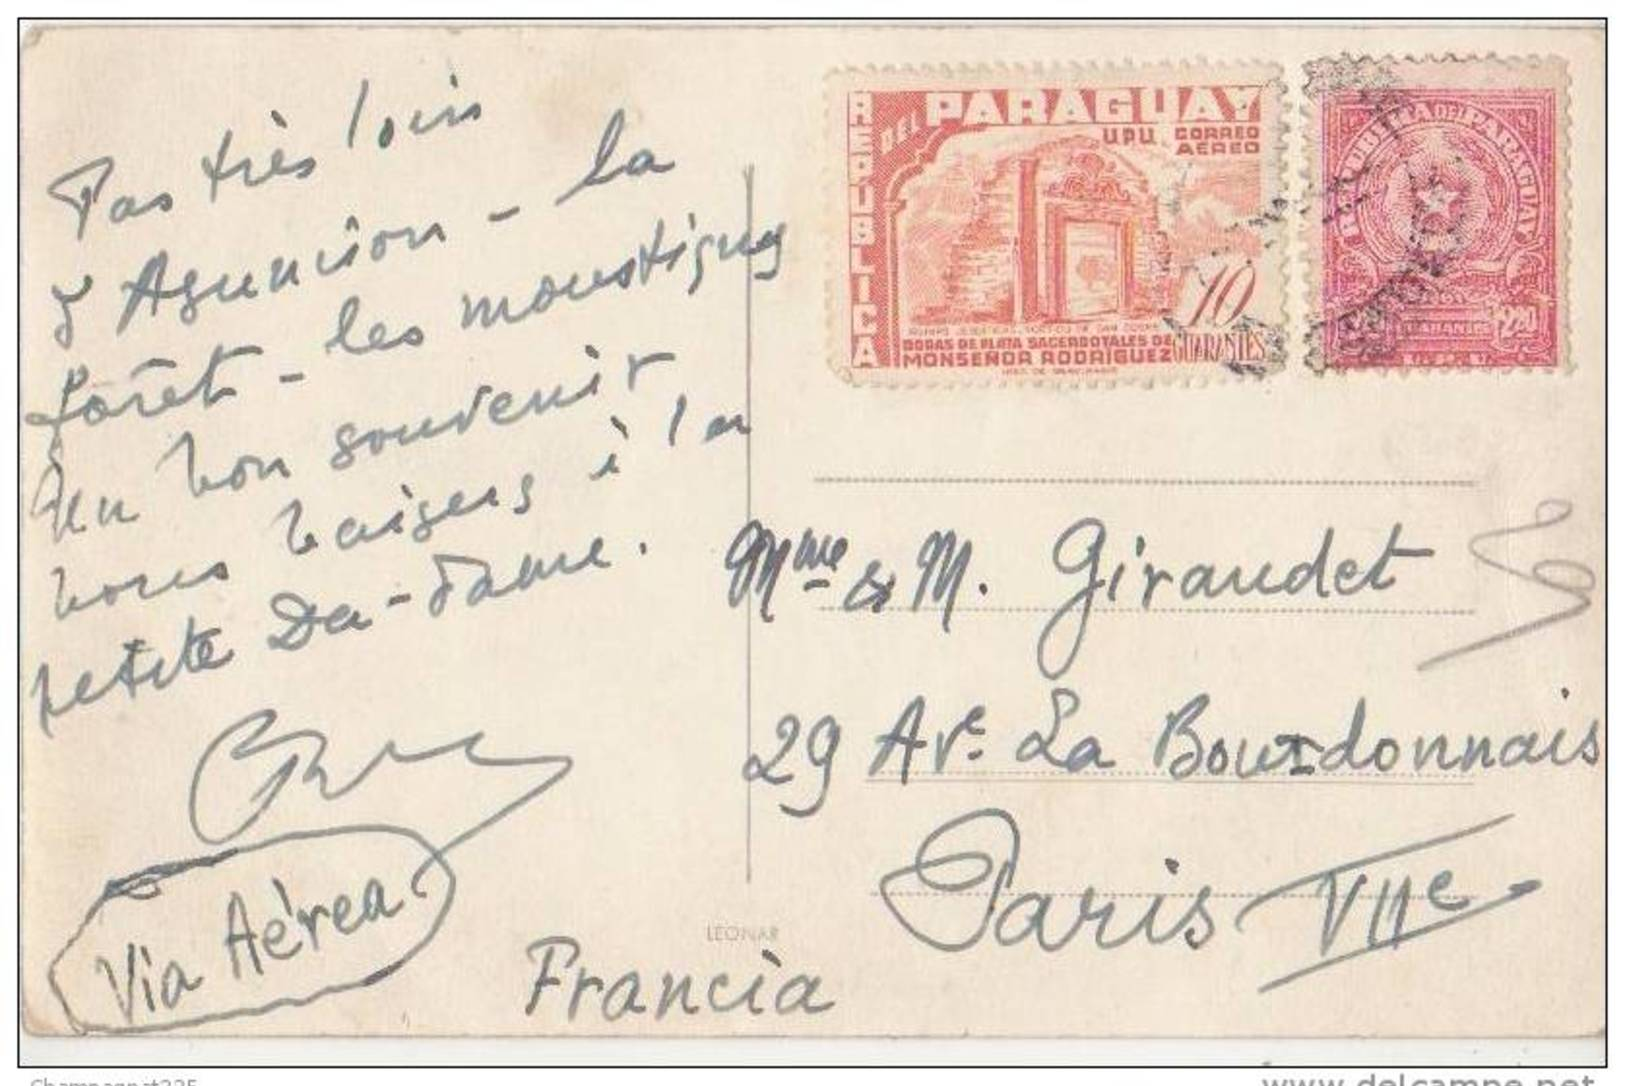 Pas très loin
d'Asuncion - la
forêt - les moustiques
Un bon souvenir
bons baisers à la
petite Da-dame.
Via Aérea
REPUBLICA
DEL PARAGUAY
U.P.U. CORREO
AEREO
10
BODAS DE PLATA SACERDOTALES DE GUARANIES
MONSEÑOR RODRIGUEZ
REPUBLICA DEL PARAGUAY
2.20
U.P.U.
Mme & M. Giraudet
29 Ave. La Bourdonnais
Paris VIIe
Francia
LEONAR
Champagnat225
www.delcampe.net